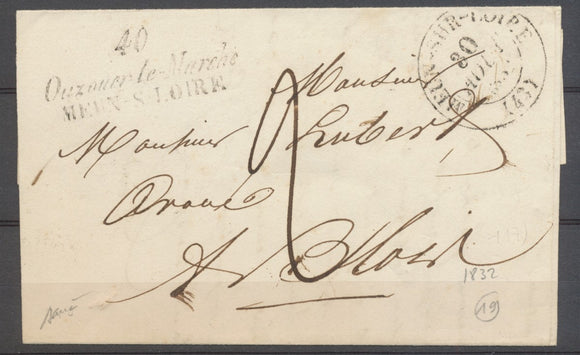 40
Ouzouer-le-Marché
MEUN-S-LOIRE
MEUN-SUR-LOIRE
30
AOUT
(43)
Monsieur
Monsieur Lubert
Avoué
A Blois
2
1832
19